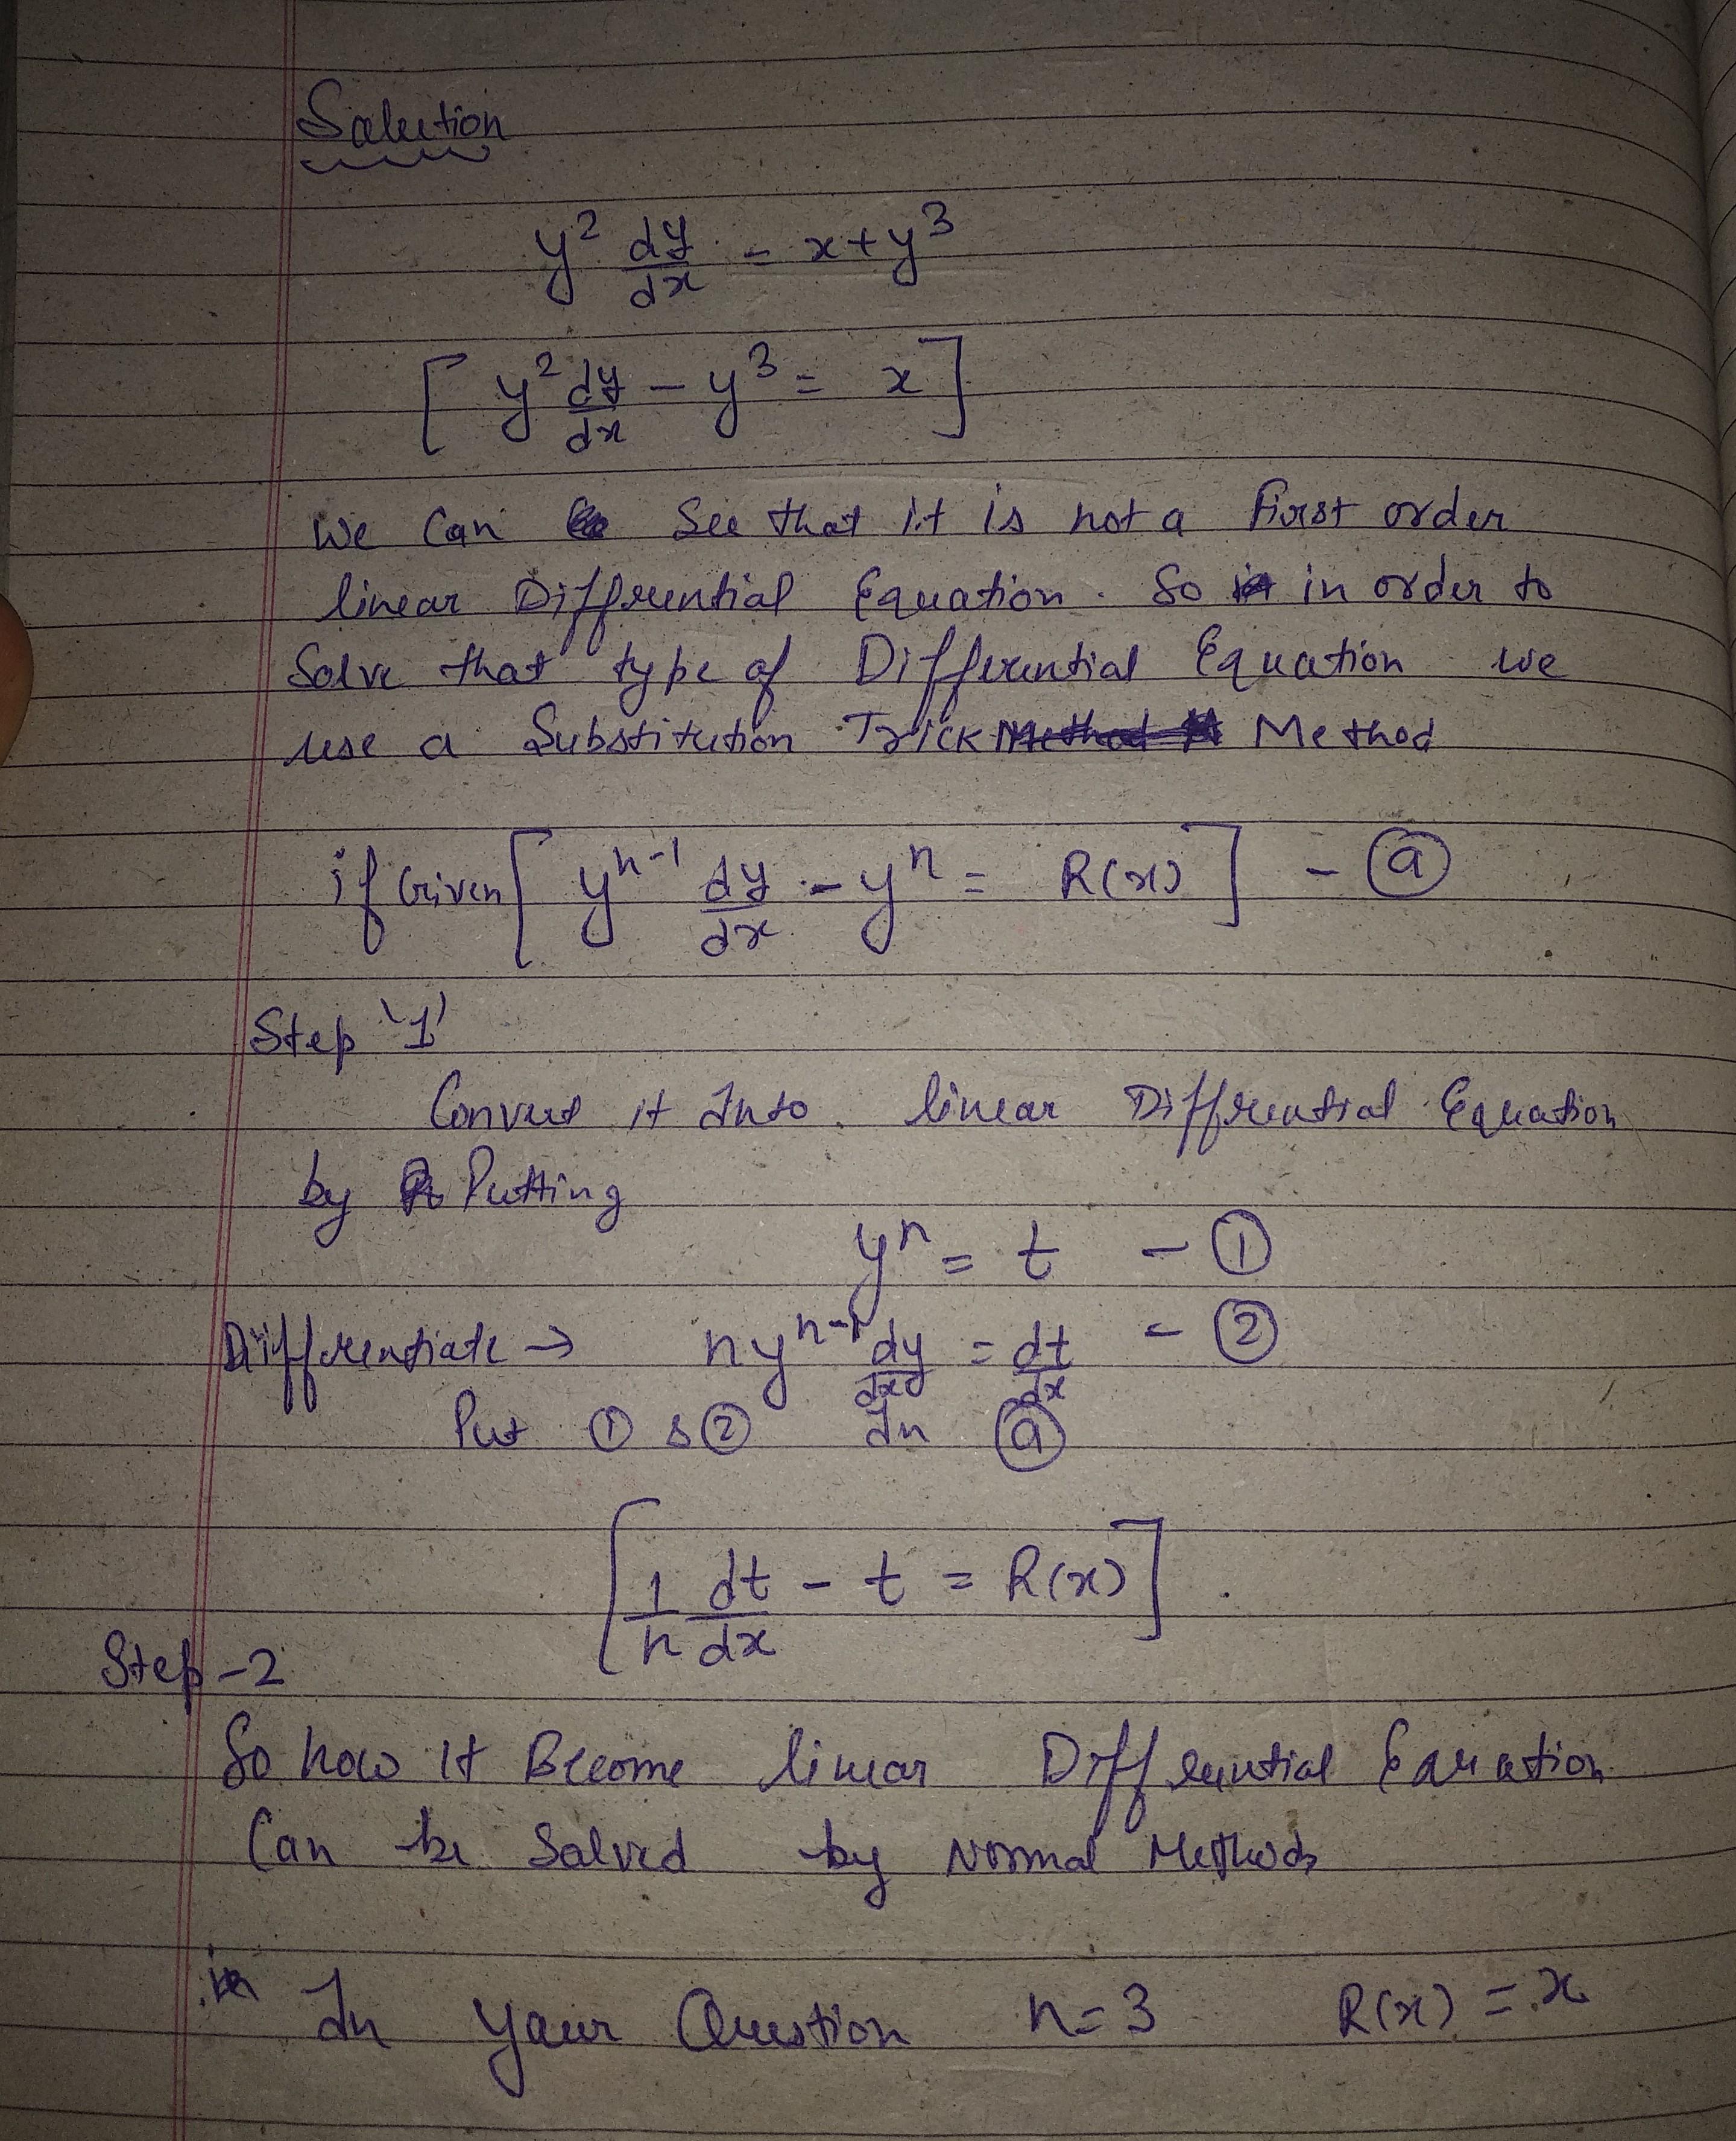 Solution
y² dy/dx = x+y³
[ y² dy/dx - y³ = x ]
We Can See that it is not a First order
linear Differential Equation. So in order to
Solve that type of Differential Equation we
use a Substitution Trick Method
if Given [ yⁿ⁻¹ dy/dx - yⁿ = R(x) ] - ⓐ
Step '1'
Convert it Into linear Differential Equation
by Putting
yⁿ = t - ①
Differentiate → nyⁿ⁻¹ dy/dx = dt/dx - ②
Put ① & ② In ⓐ
[ 1/n dt/dx - t = R(x) ]
Step-2
So now it Become linear Differential Equation
Can be Solved by Normal Methods
In your Question n=3 R(x) = x